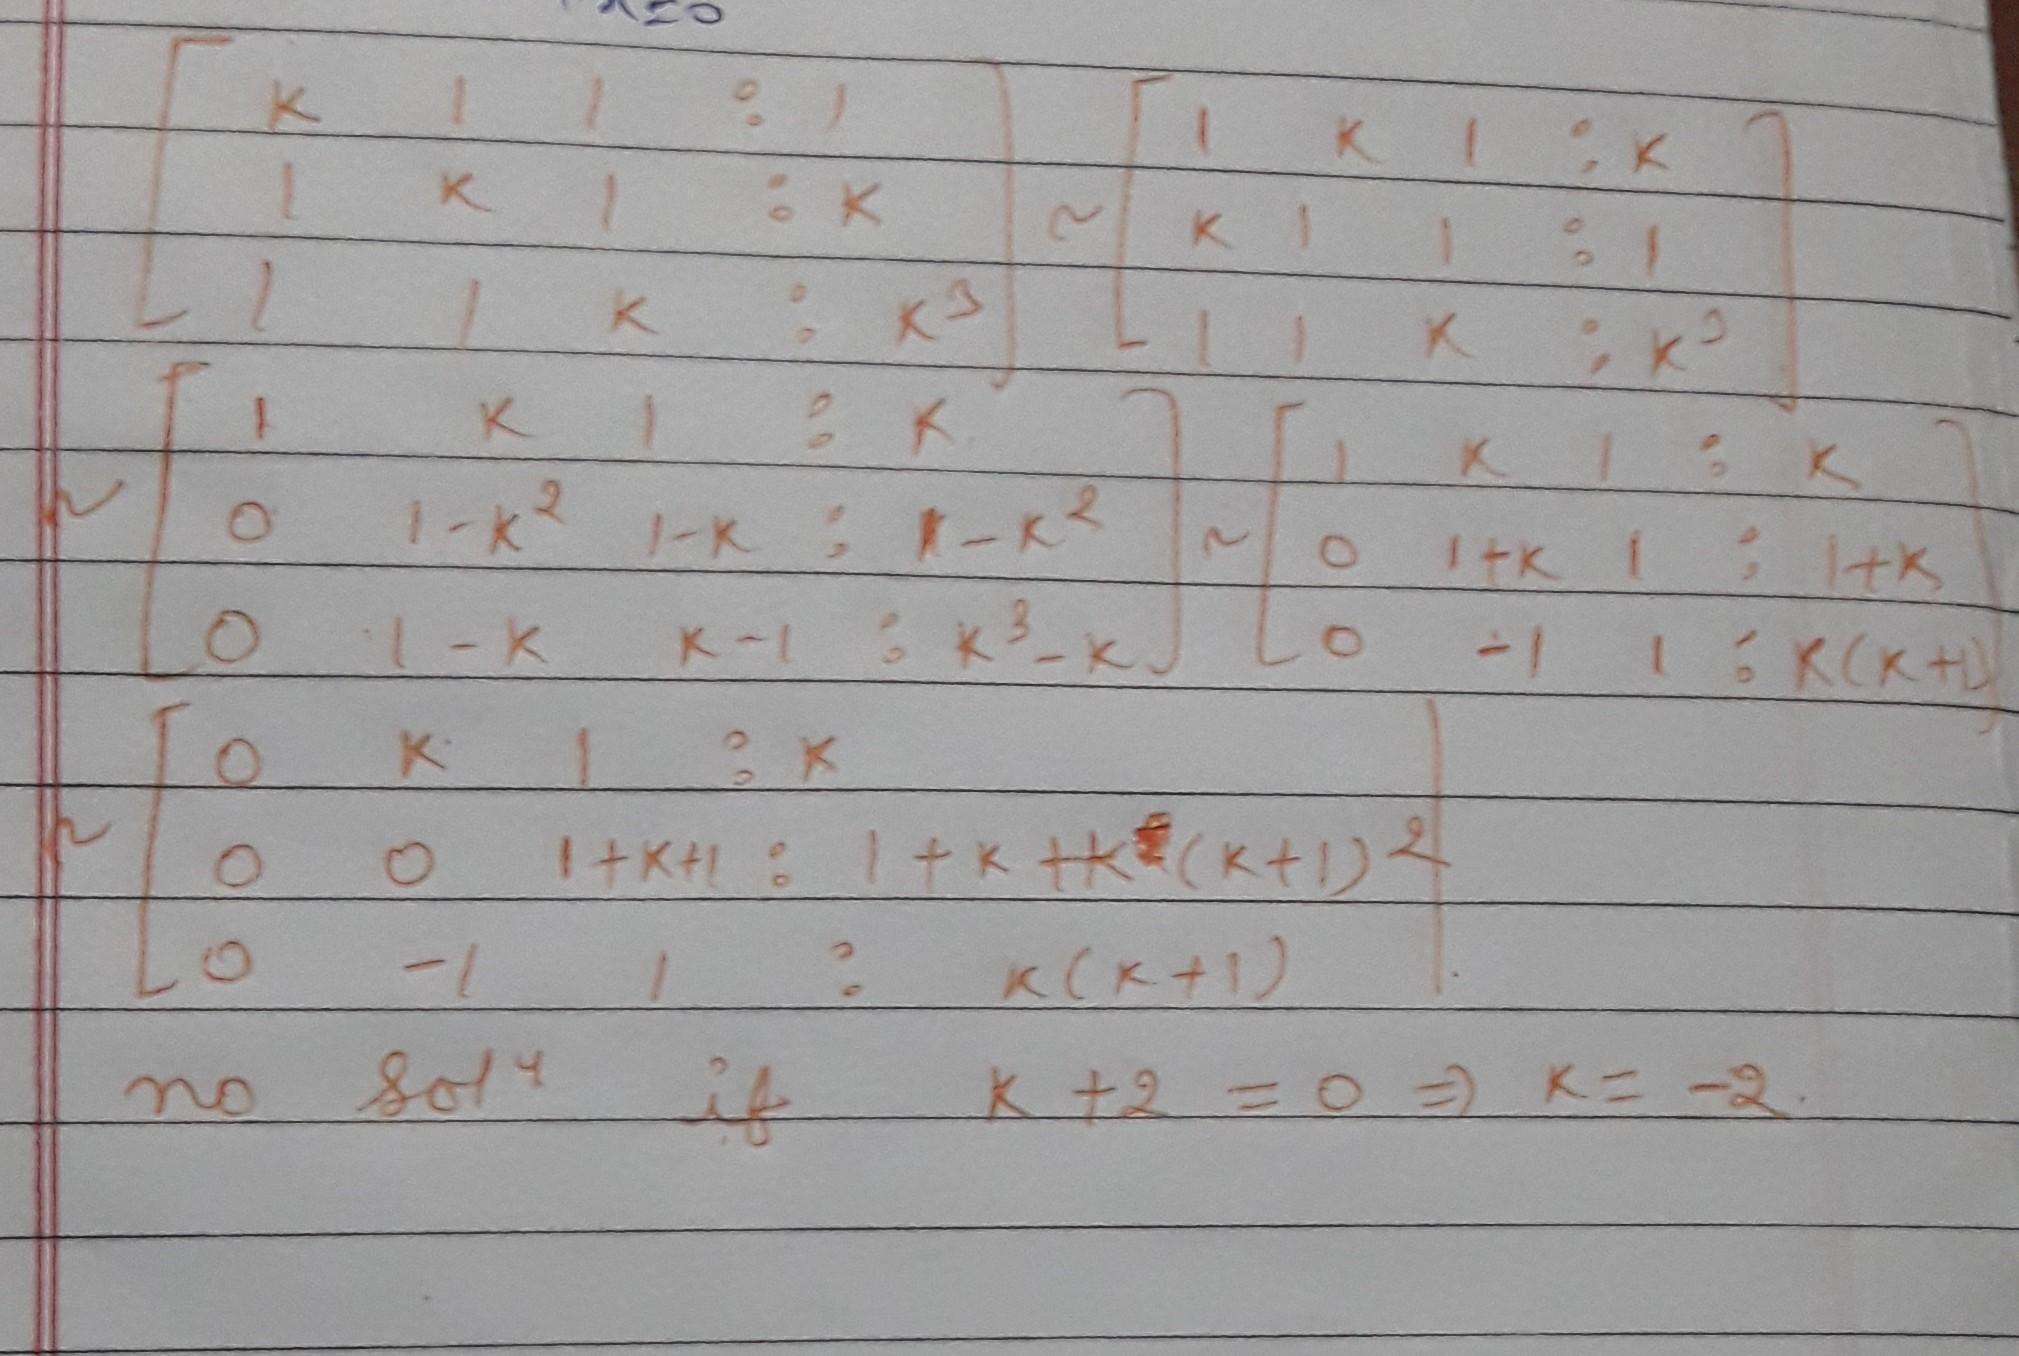 x=0
K 1 1 : 1 ~ 1 K 1 : K
1 K 1 : K K 1 1 : 1
1 1 K : K³ 1 1 K : K³
~ 1 K 1 : K ~ 1 K 1 : K
0 1-K² 1-K : 1-K² 0 1+K 1 : 1+K
0 1-K K-1 : K³-K 0 -1 1 : K(K+1)
~ 0 K 1 : K
0 0 1+K+1 : 1+K+K(K+1)²
0 -1 1 : K(K+1)
no solⁿ if K+2=0 ⇒ K=-2.